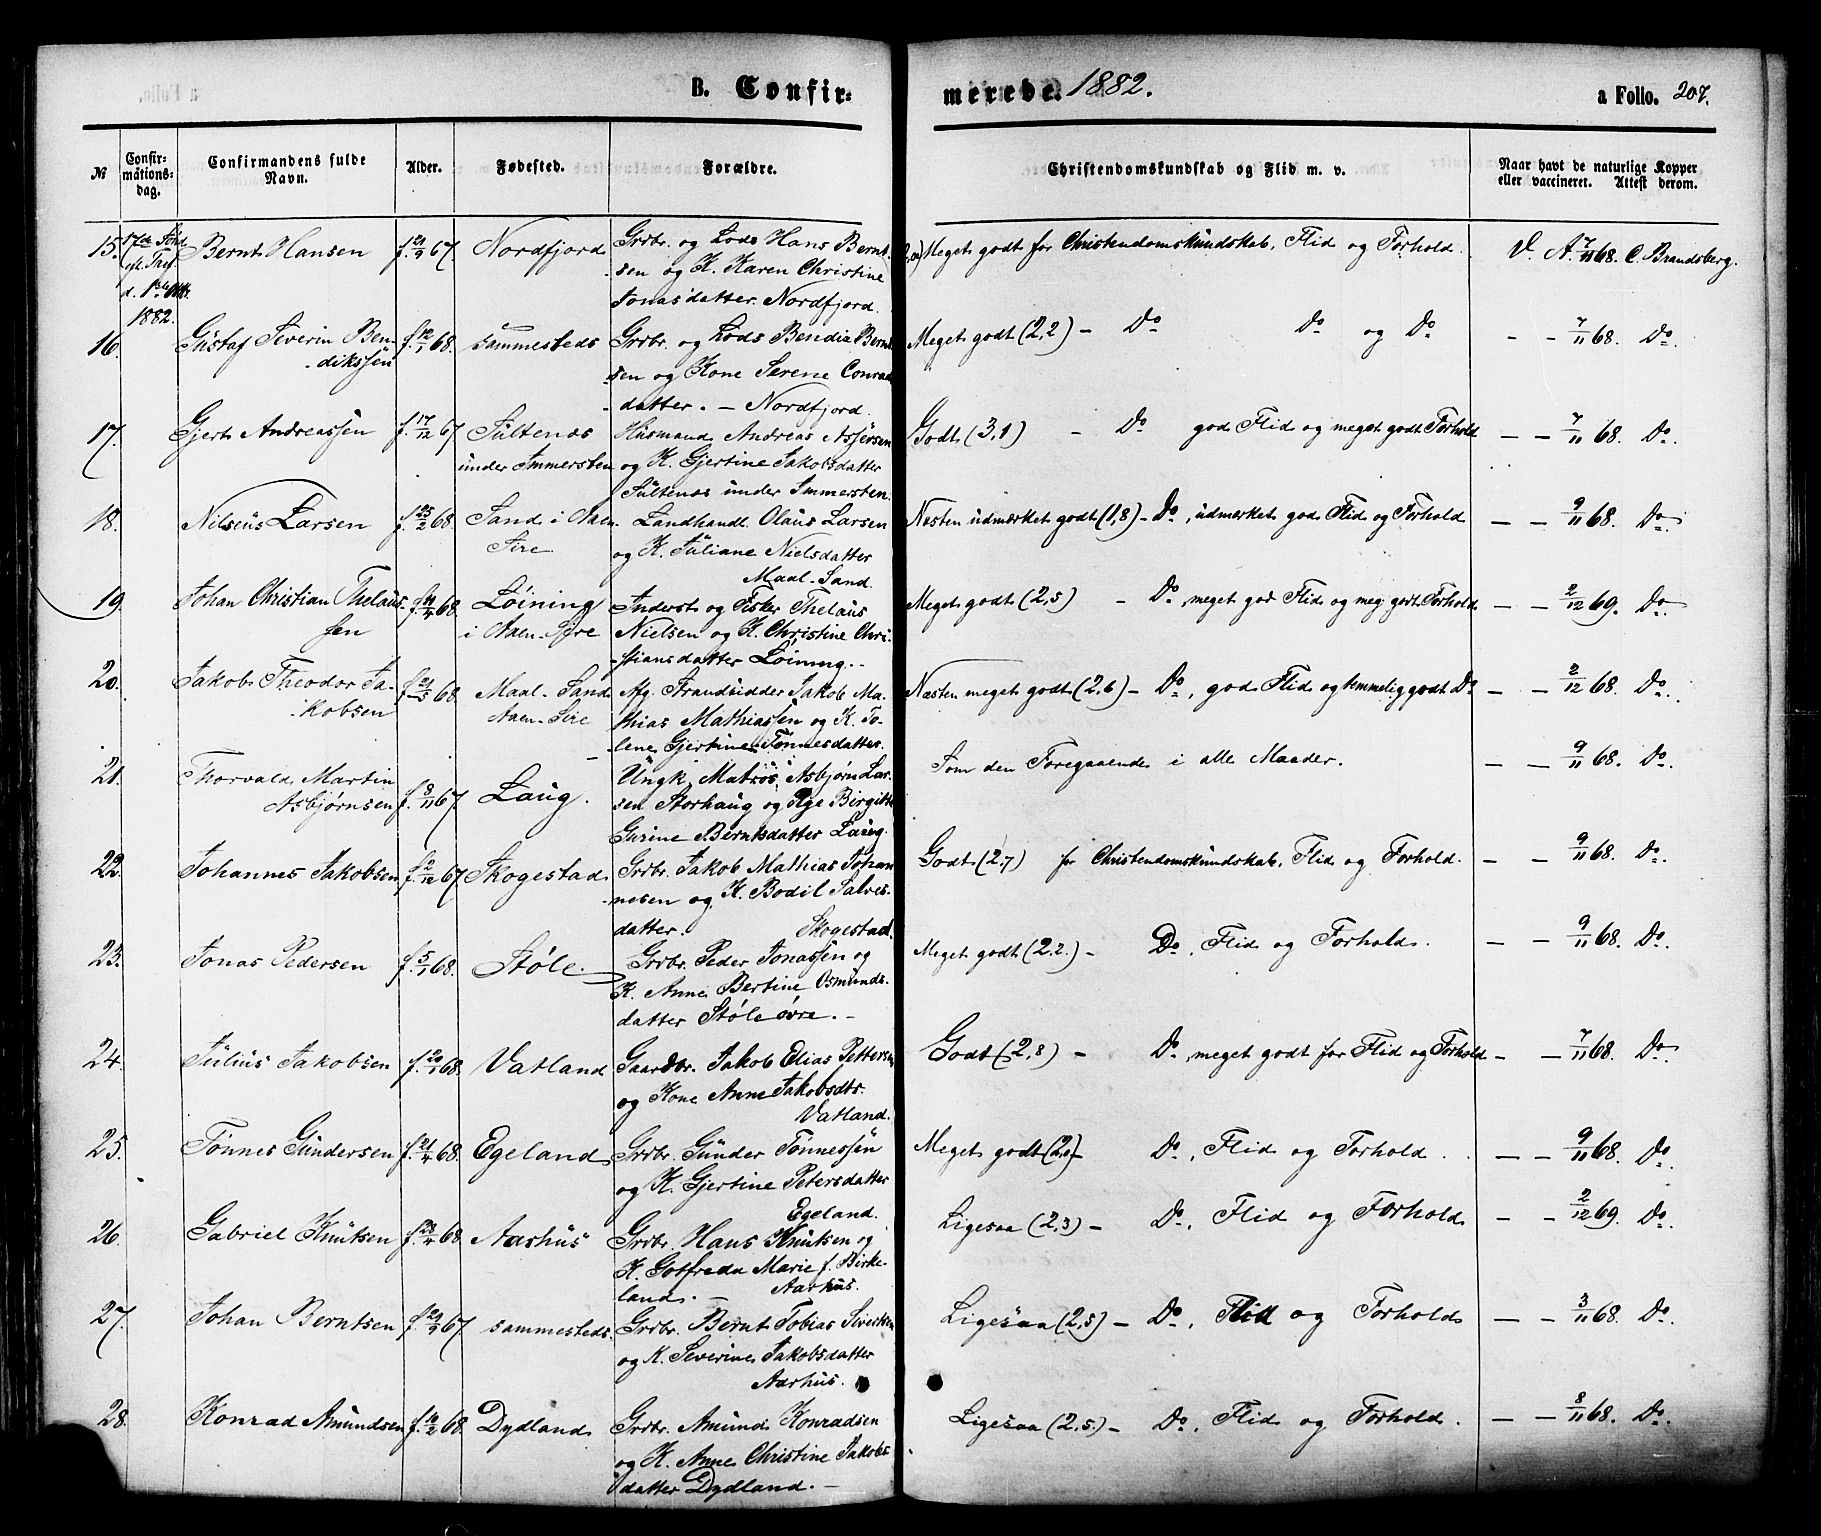 B. Confir-
merede. 1882.
a Follo. 207.
№
Confir-
mations-
dag.
Confirmandens fulde
Navn.
Alder.
Fødested.
Forældre.
Christendomskundskab og Flid m. v.
Naar havt de naturlige Kopper
eller vaccineret. Attest derom.
15. 17de Sønd. Bernt Hansen f. 21/9 67 Nordfjord Grbr. og Lods Hans Bernt- Meget godt for Christendomskundskab, Flid og Forhold. V. A. 7/11 68. C. Brandsberg.
eft. Tref. sen og K. Karen Christine
d. 1ste Oktb. Jonasdatter. Nordfjord.
1882.
16. Gustaf Severin Ben- f. 12/1 68. sammesteds Grbr. og Lods Bendix Bernt- Meget godt (2,2) - Do Do og Do - - 7/11 68. Do.
dikssen sen og Kone Serene Conrads-
datter. - Nordfjord.
17. Gjert Andreassen f. 17/12 67 Sultenos Husmand Andreas Assersen Godt (3,1) - Do god Flid og meget godt Forhold - - 7/11 68. Do.
under Immersten og K. Gjertine Jakobsdatter
Sultenos under Immersten.
18. Nilseus Larsen f. 25/2 68. Sand i Aaen- Landhandl. Olaus Larsen Næsten udmærket godt (1,8) - Do, udmærket god Flid og Forhold - - 9/11 68. Do
Sire og K. Juliane Nielsdatter
Maal-Sand.
19. Johan Christian Thelaus- f. 19/4 68. Løining Inderst og Fisker Thelaus Meget godt (2,5) - Do, meget god Flid og meg. godt Forhold - - 2/12 69. Do
sen i Aaen-Sire Nielsen og K. Christine Chri-
stiansdatter Løining.
20. Jakob Theodor Ja- f. 21/5 68. Maal-Sand Afg. Strandsidder Jakob Ma- Næsten meget godt (2,6) - Do, god Flid og temmelig godt Do - - 2/12 68. Do.
kobsen Aaen-Sire thias Mathiassen og K. To-
lene Gjertine Tønnesdatter.
21. Thorvald Martin Ungk. Matros Asbjørn Lar- Som den Foregaaende i alle Maader. - - 9/11 68. Do.
Asbjørnsen f. 8/11 67. Laug. sen Storhaug og Pge Birgitte
Gurine Berntsdatter Laug.
22. Johannes Jakobsen f. 2/12 67 Skogestad Grbr. Jakob Mathias Johan- Godt (2,7) for Christendomskundskab, Flid og Forhold. - - 9/11 68. Do.
nesen og K. Bodil Salves-
datter. Skogestad.
23. Jonas Pedersen f. 5/1 68. Støle. Grbr. Peder Jonassen og Meget godt (2,2.) - Do, Flid og Forhold. - - 9/11 68. Do.
K. Anne Bertine Osmunds-
datter Støle øvre. -
24. Julius Jakobsen f. 20/1 68. Vatland Gaardbr. Jakob Elias Pettersen Godt (2,8) - Do, meget godt for Flid og Forhold - - 7/11 68. Do.
og Kone Anne Jakobsdtr.
Vatland.
25. Tønnes Gundersen f. 21/4 68. Egeland Grbr. Gunder Tønnessen Meget godt (2,0) - Do, Flid og Forhold. - - 9/11 68. Do.
og K. Gjertine Petersdatter
Egeland.
26. Gabriel Knutsen f. 23/4 68. Aashus Grbr. Hans Knutsen og Ligesaa (2,3) - Do, Flid og Forhold - - 2/12 69. Do.
K. Gotfreda Marie f. Birke-
land. - Aarhus.
27. Johan Berntsen f. 21/9 67. sammesteds. Grbr. Bernt Tobias Sivertsen Ligesaa (2,5) - Do, Flid og Forhold - - 3/11 68. Do.
og K. Severine Jakobsdatter
Aarhus.
28. Konrad Amundsen f. 19/2 68. Dydland Grbr. Amund Konradsen Ligesaa (2,5.) - Do, Flid og Forhold. - - 8/11 68. Do.
og K. Anne Christine Jakobs-
datter Dydland. -